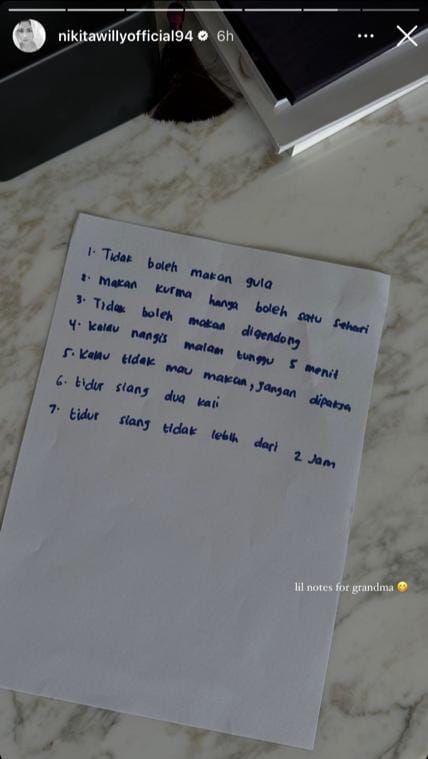 nikitawillyofficial94 6h
1. Tidak boleh makan gula
2. Makan kurma hanya boleh satu sehari
3. Tidak boleh makan digendong
4. Kalau nangis malam tunggu 5 menit
5. Kalau tidak mau makan, jangan dipaksa
6. tidur siang dua kali
7. tidur siang tidak lebih dari 2 Jam
lil notes for grandma 😋